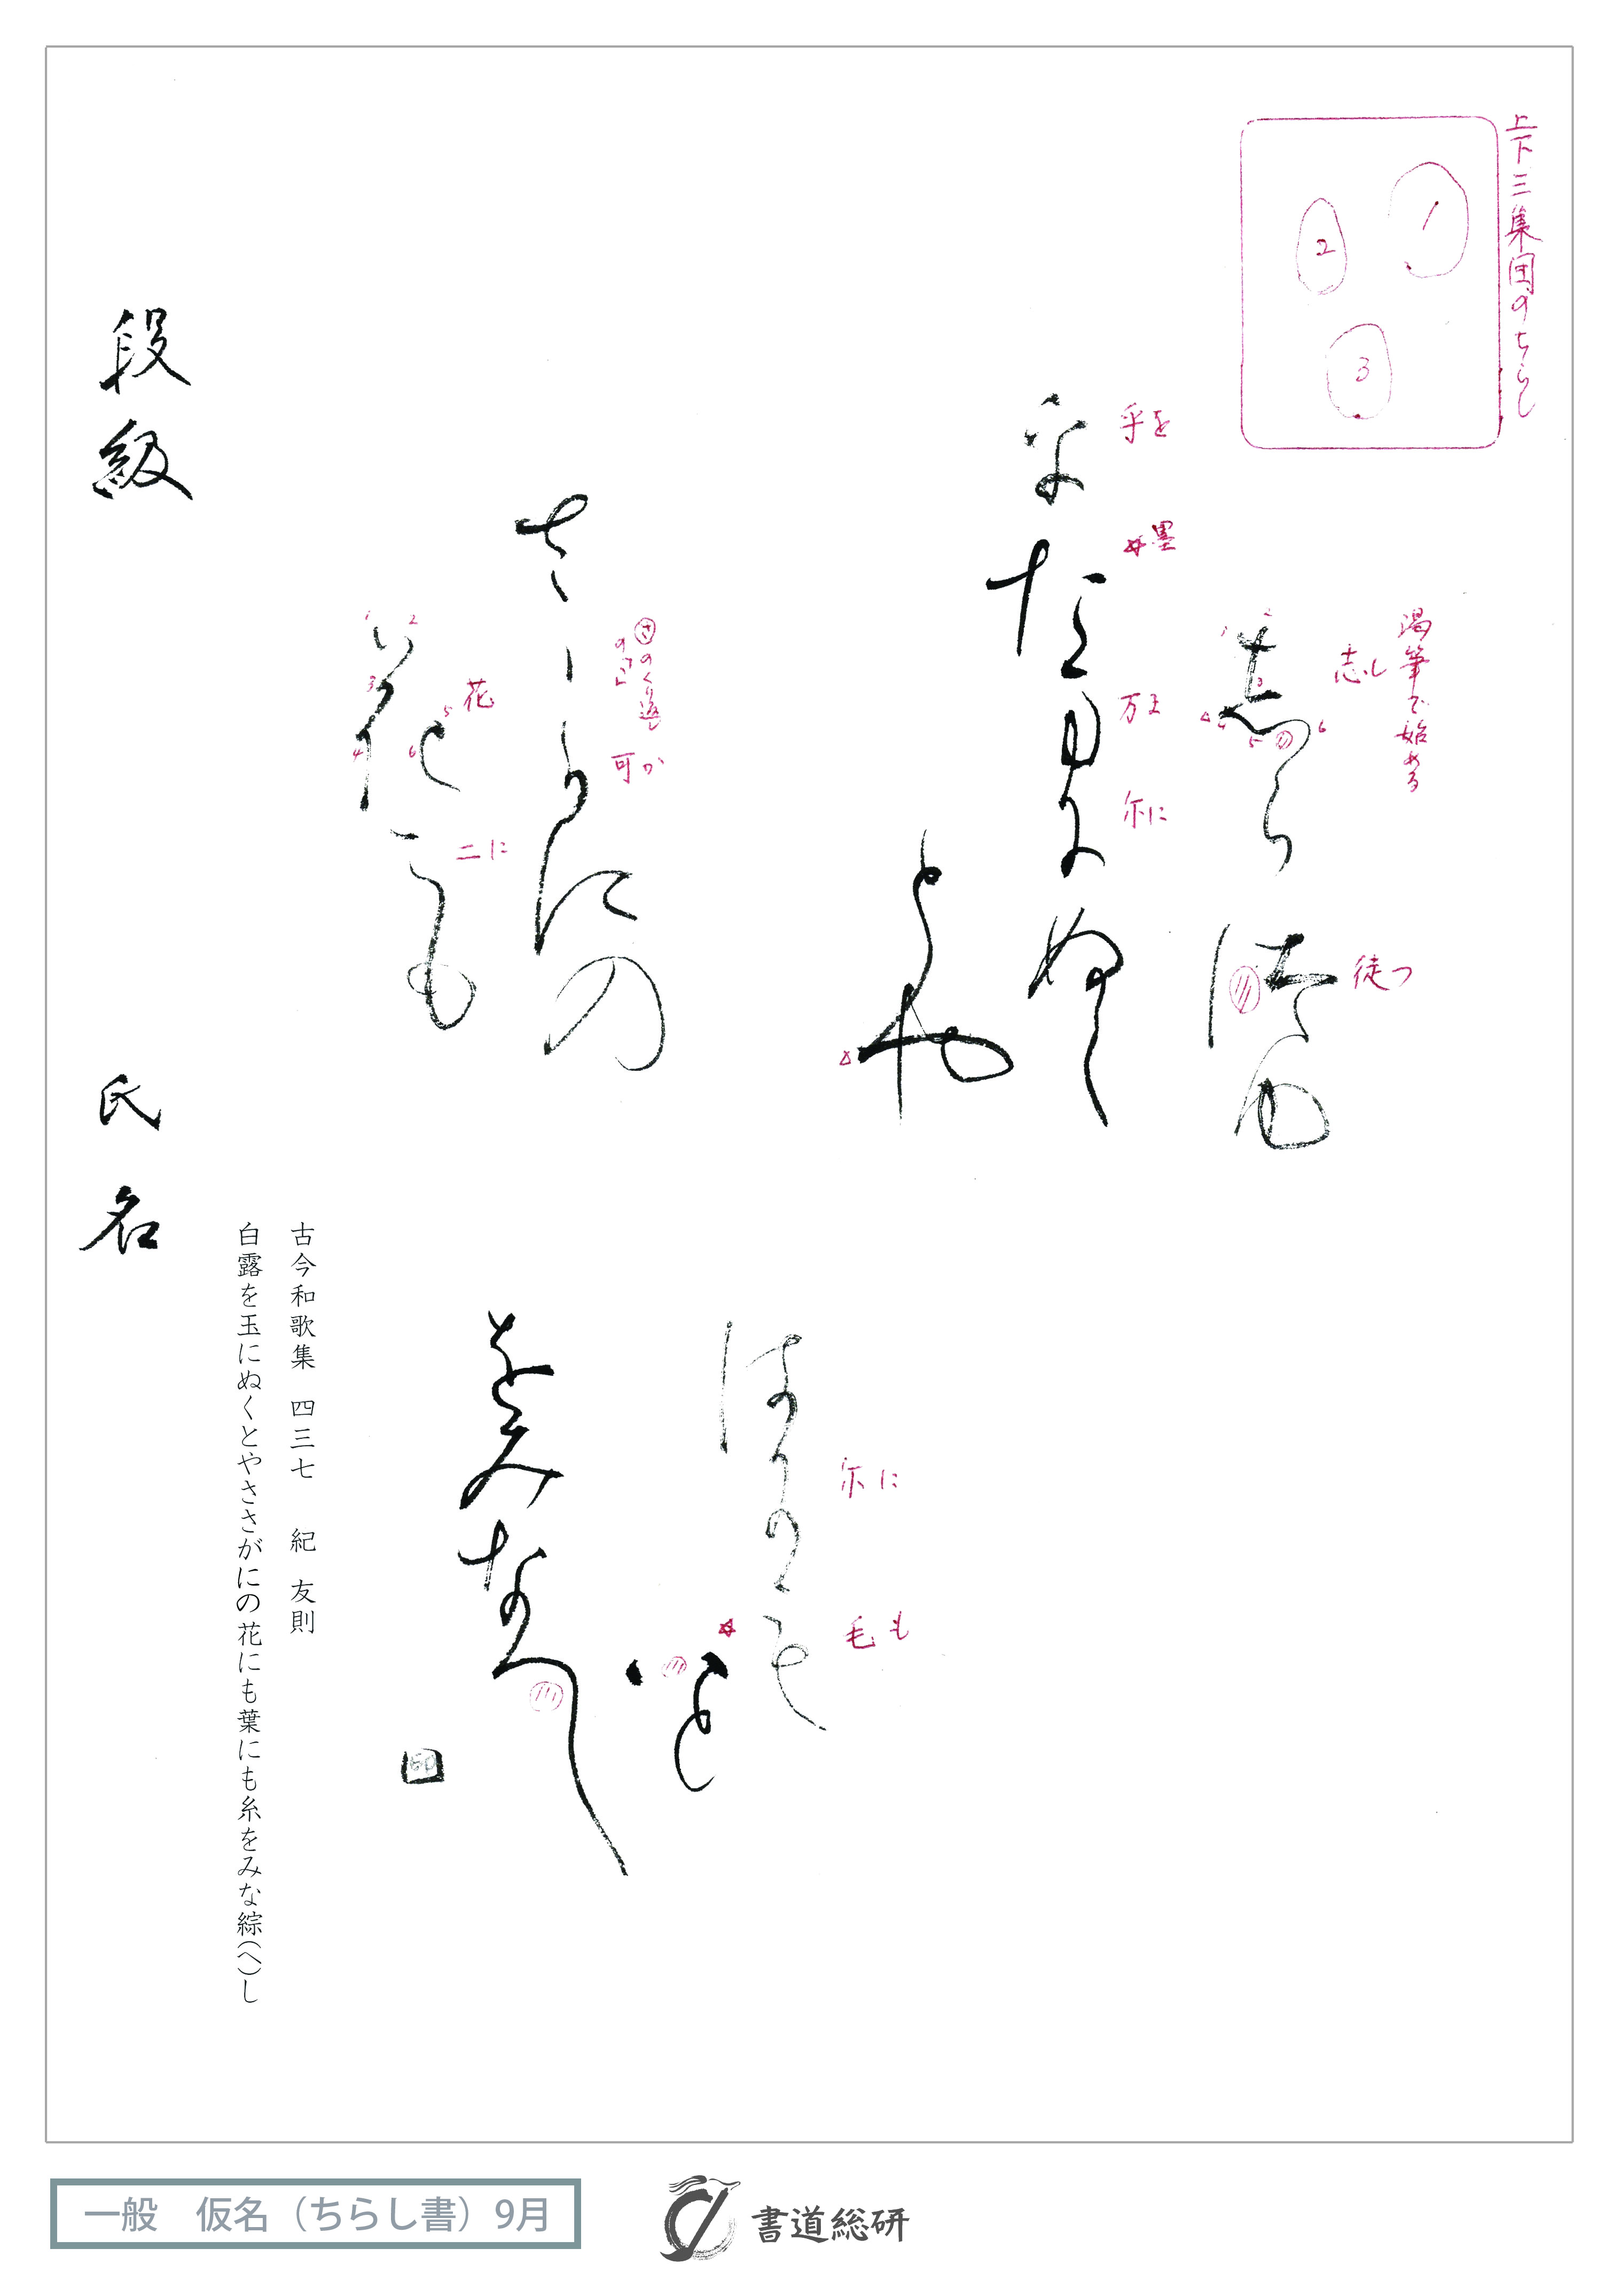 上下三集団のちらし
1
2
3
渇筆で始める
志し
徒つ
志ら徒ゆ
乎を
墨
万ま
尓に
乎た万尓ぬく
とや
さのくり返し
の「ゝ」
可か
さゝ可にの
花
二に
花二も
尓に
毛も
は尓も
いと
をみなへし
印
古今和歌集 四三七 紀 友則
白露を玉にぬくとやささがにの花にも葉にも糸をみな綜(へ)し
段級
氏名
一般 仮名(ちらし書)9月
書道総研